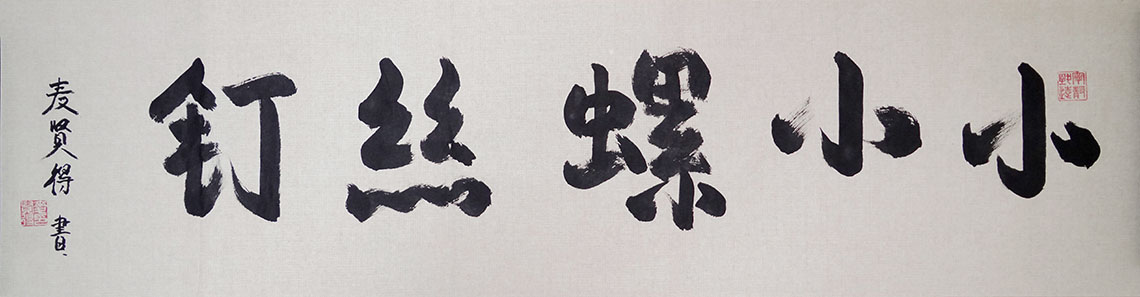 小小螺丝釘
麦賢得 書